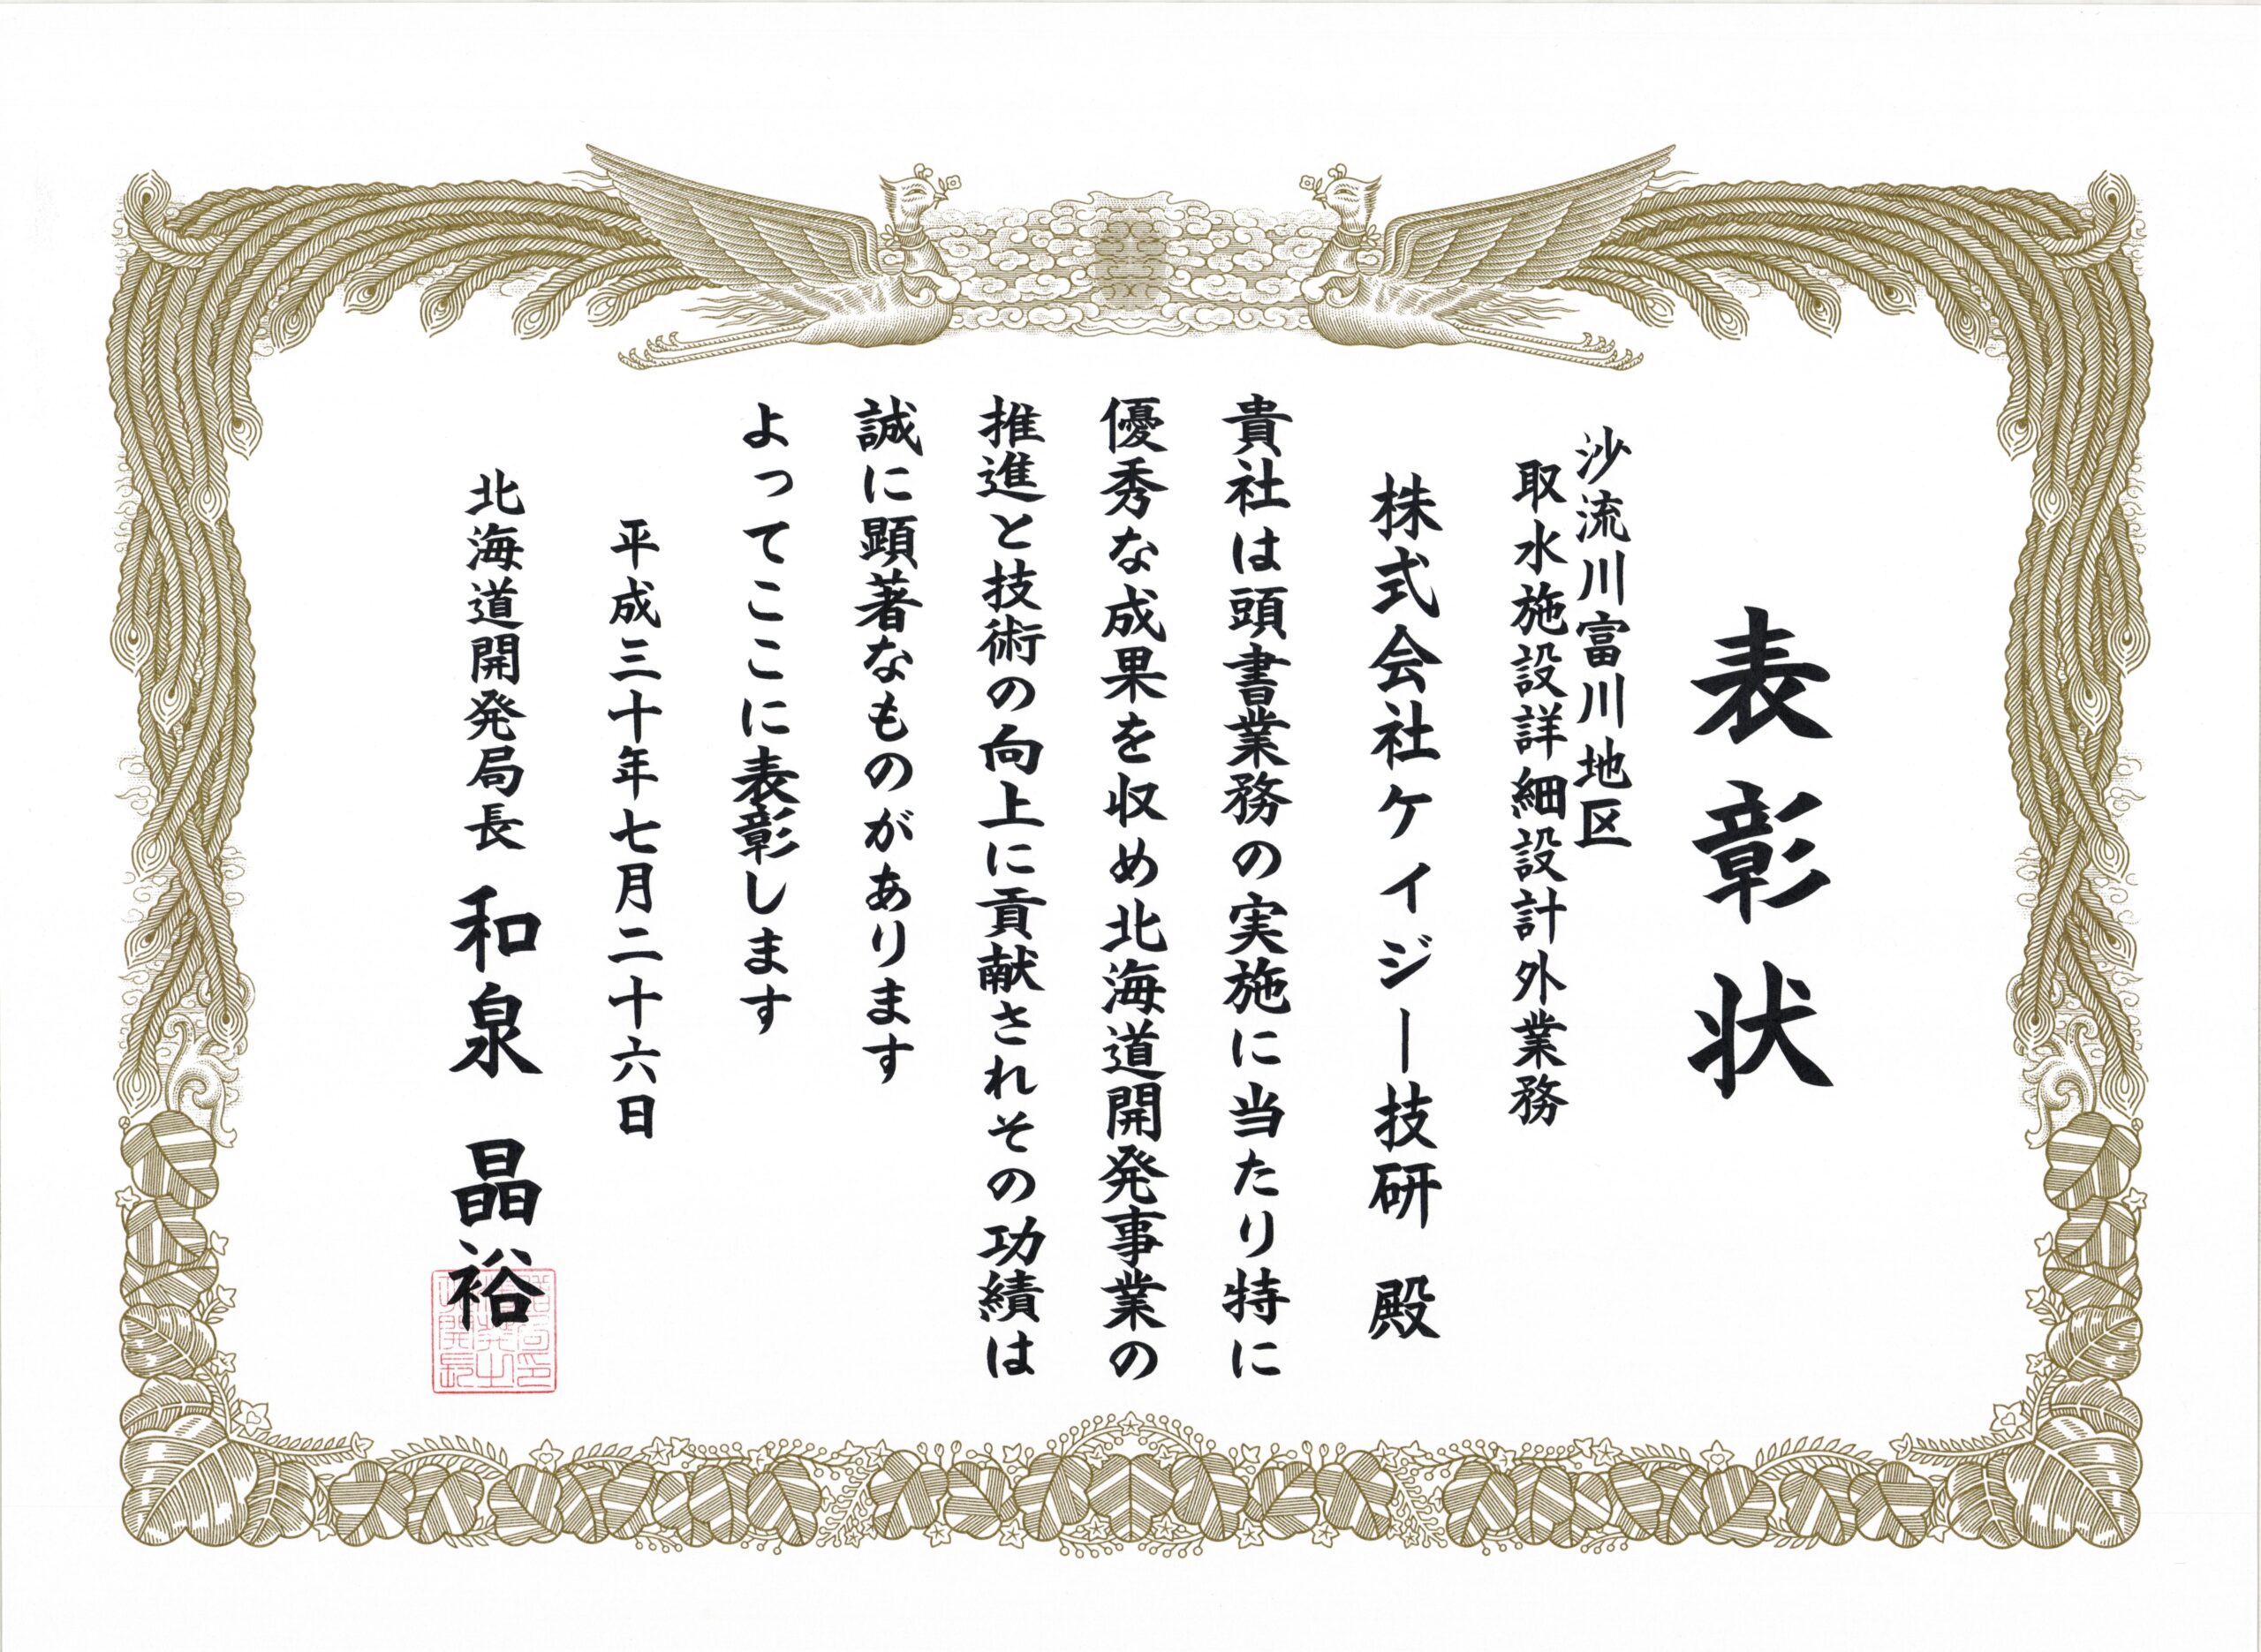 表彰状
沙流川富川地区
取水施設詳細設計外業務
株式会社ケイジー技研 殿
貴社は頭書業務の実施に当たり特に
優秀な成果を収め北海道開発事業の
推進と技術の向上に貢献されその功績は
誠に顕著なものがあります
よってここに表彰します
平成三十年七月二十六日
北海道開発局長 和泉 晶裕